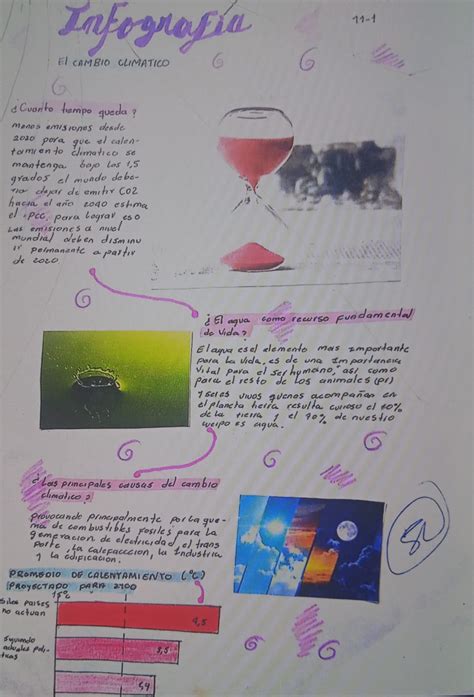 Infografía
11-1
El CAMBIO CLIMATICO
¿Cuanto tiempo queda?
menos emisiones desde
2020 para que el calen-
tamiento climatico se
mantenga bajo los 1,5
grados el mundo debe-
ria dejar de emitir CO2
hacia el año 2040 estima
el IPCC, para lograr eso
las emisiones a nivel
mundial deben disminu
ir permanente a partir
de 2020
¿El agua como recurso fundamental
de Vida?
El agua es el elemento mas importante
para la Vida, es de una Importancia
Vital para el ser humano, asi como
para el resto de los animales
y seres vivos que nos acompañan en
el planeta tierra resulta curioso el
de la tierra y el 70% de nuestro
cuerpo es agua.
¿Las principales causas del cambio
climatico?
provocando principalmente por la que-
ma de combustibles fosiles para la
generacion de electricidad, el trans
porte, la calefaccion, la Industria
y la edificacion.
PROMEDIO DE CALENTAMIENTO (°C)
PROYECTADO PARA 2100
Si los paises
no actuan
Siguiendo
actuales poli-
ticas